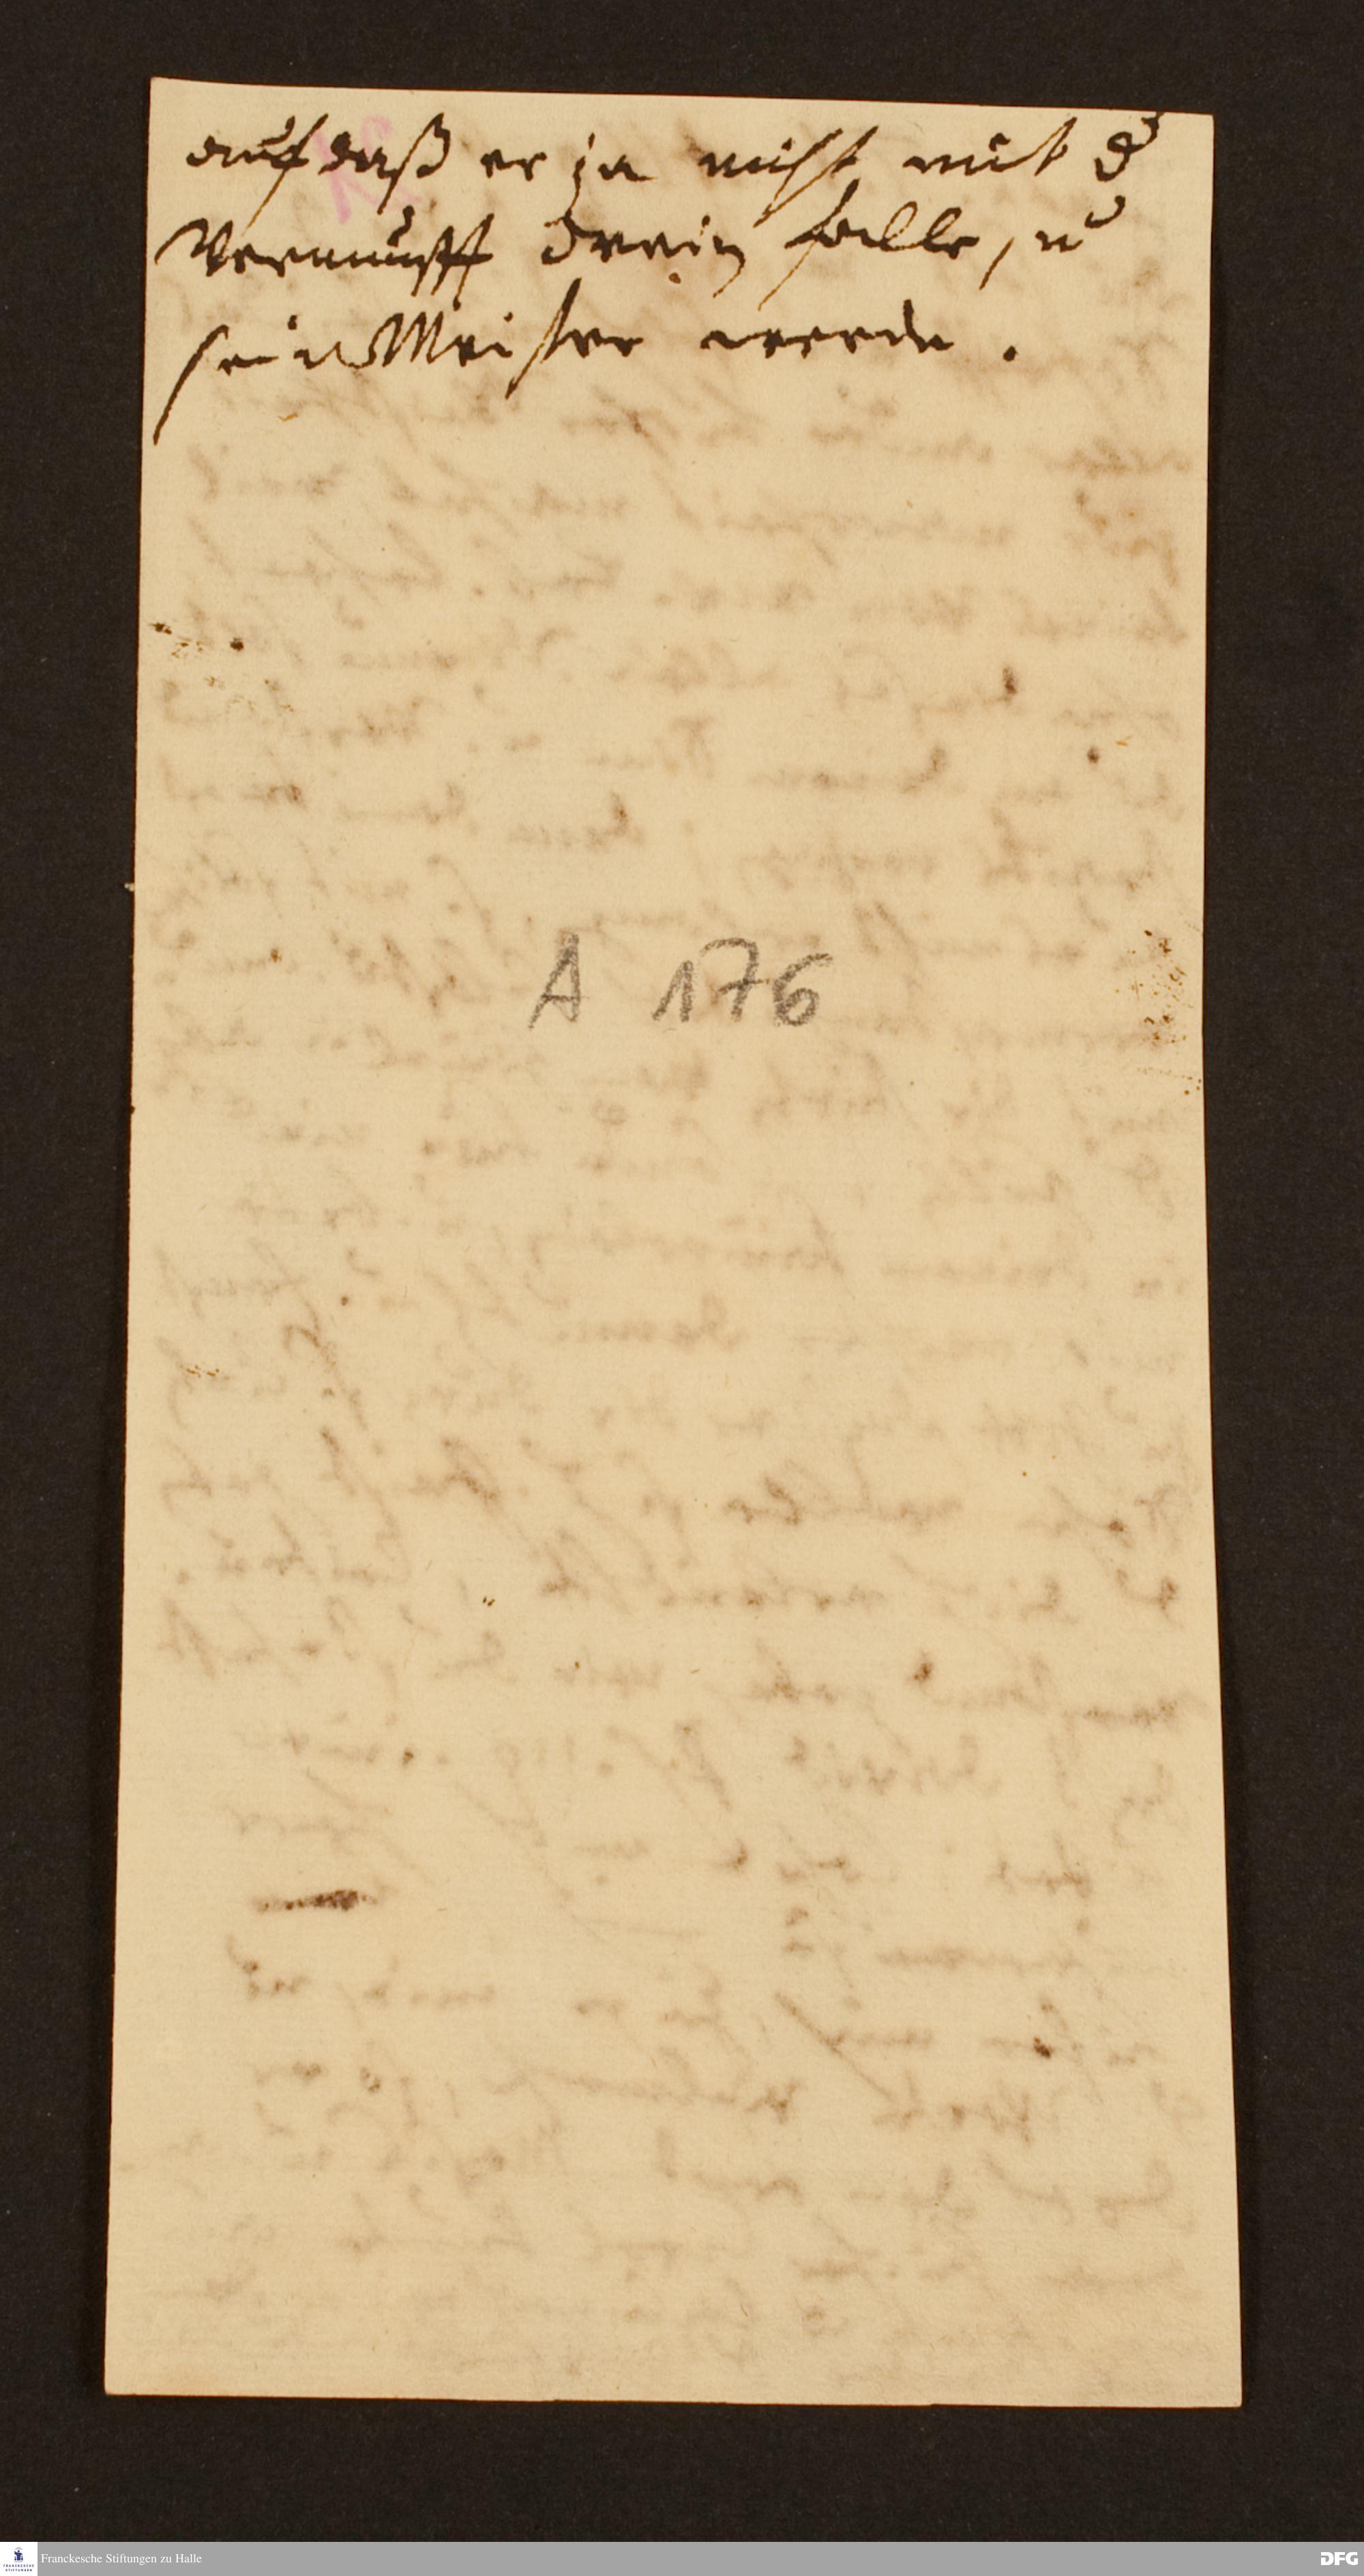 auf daß er ja nicht mit d
Vernunfft drein falle, u
sein Meister werde.
A 176
FRANCKESCHE
STIFTUNGEN
Franckesche Stiftungen zu Halle
DFG